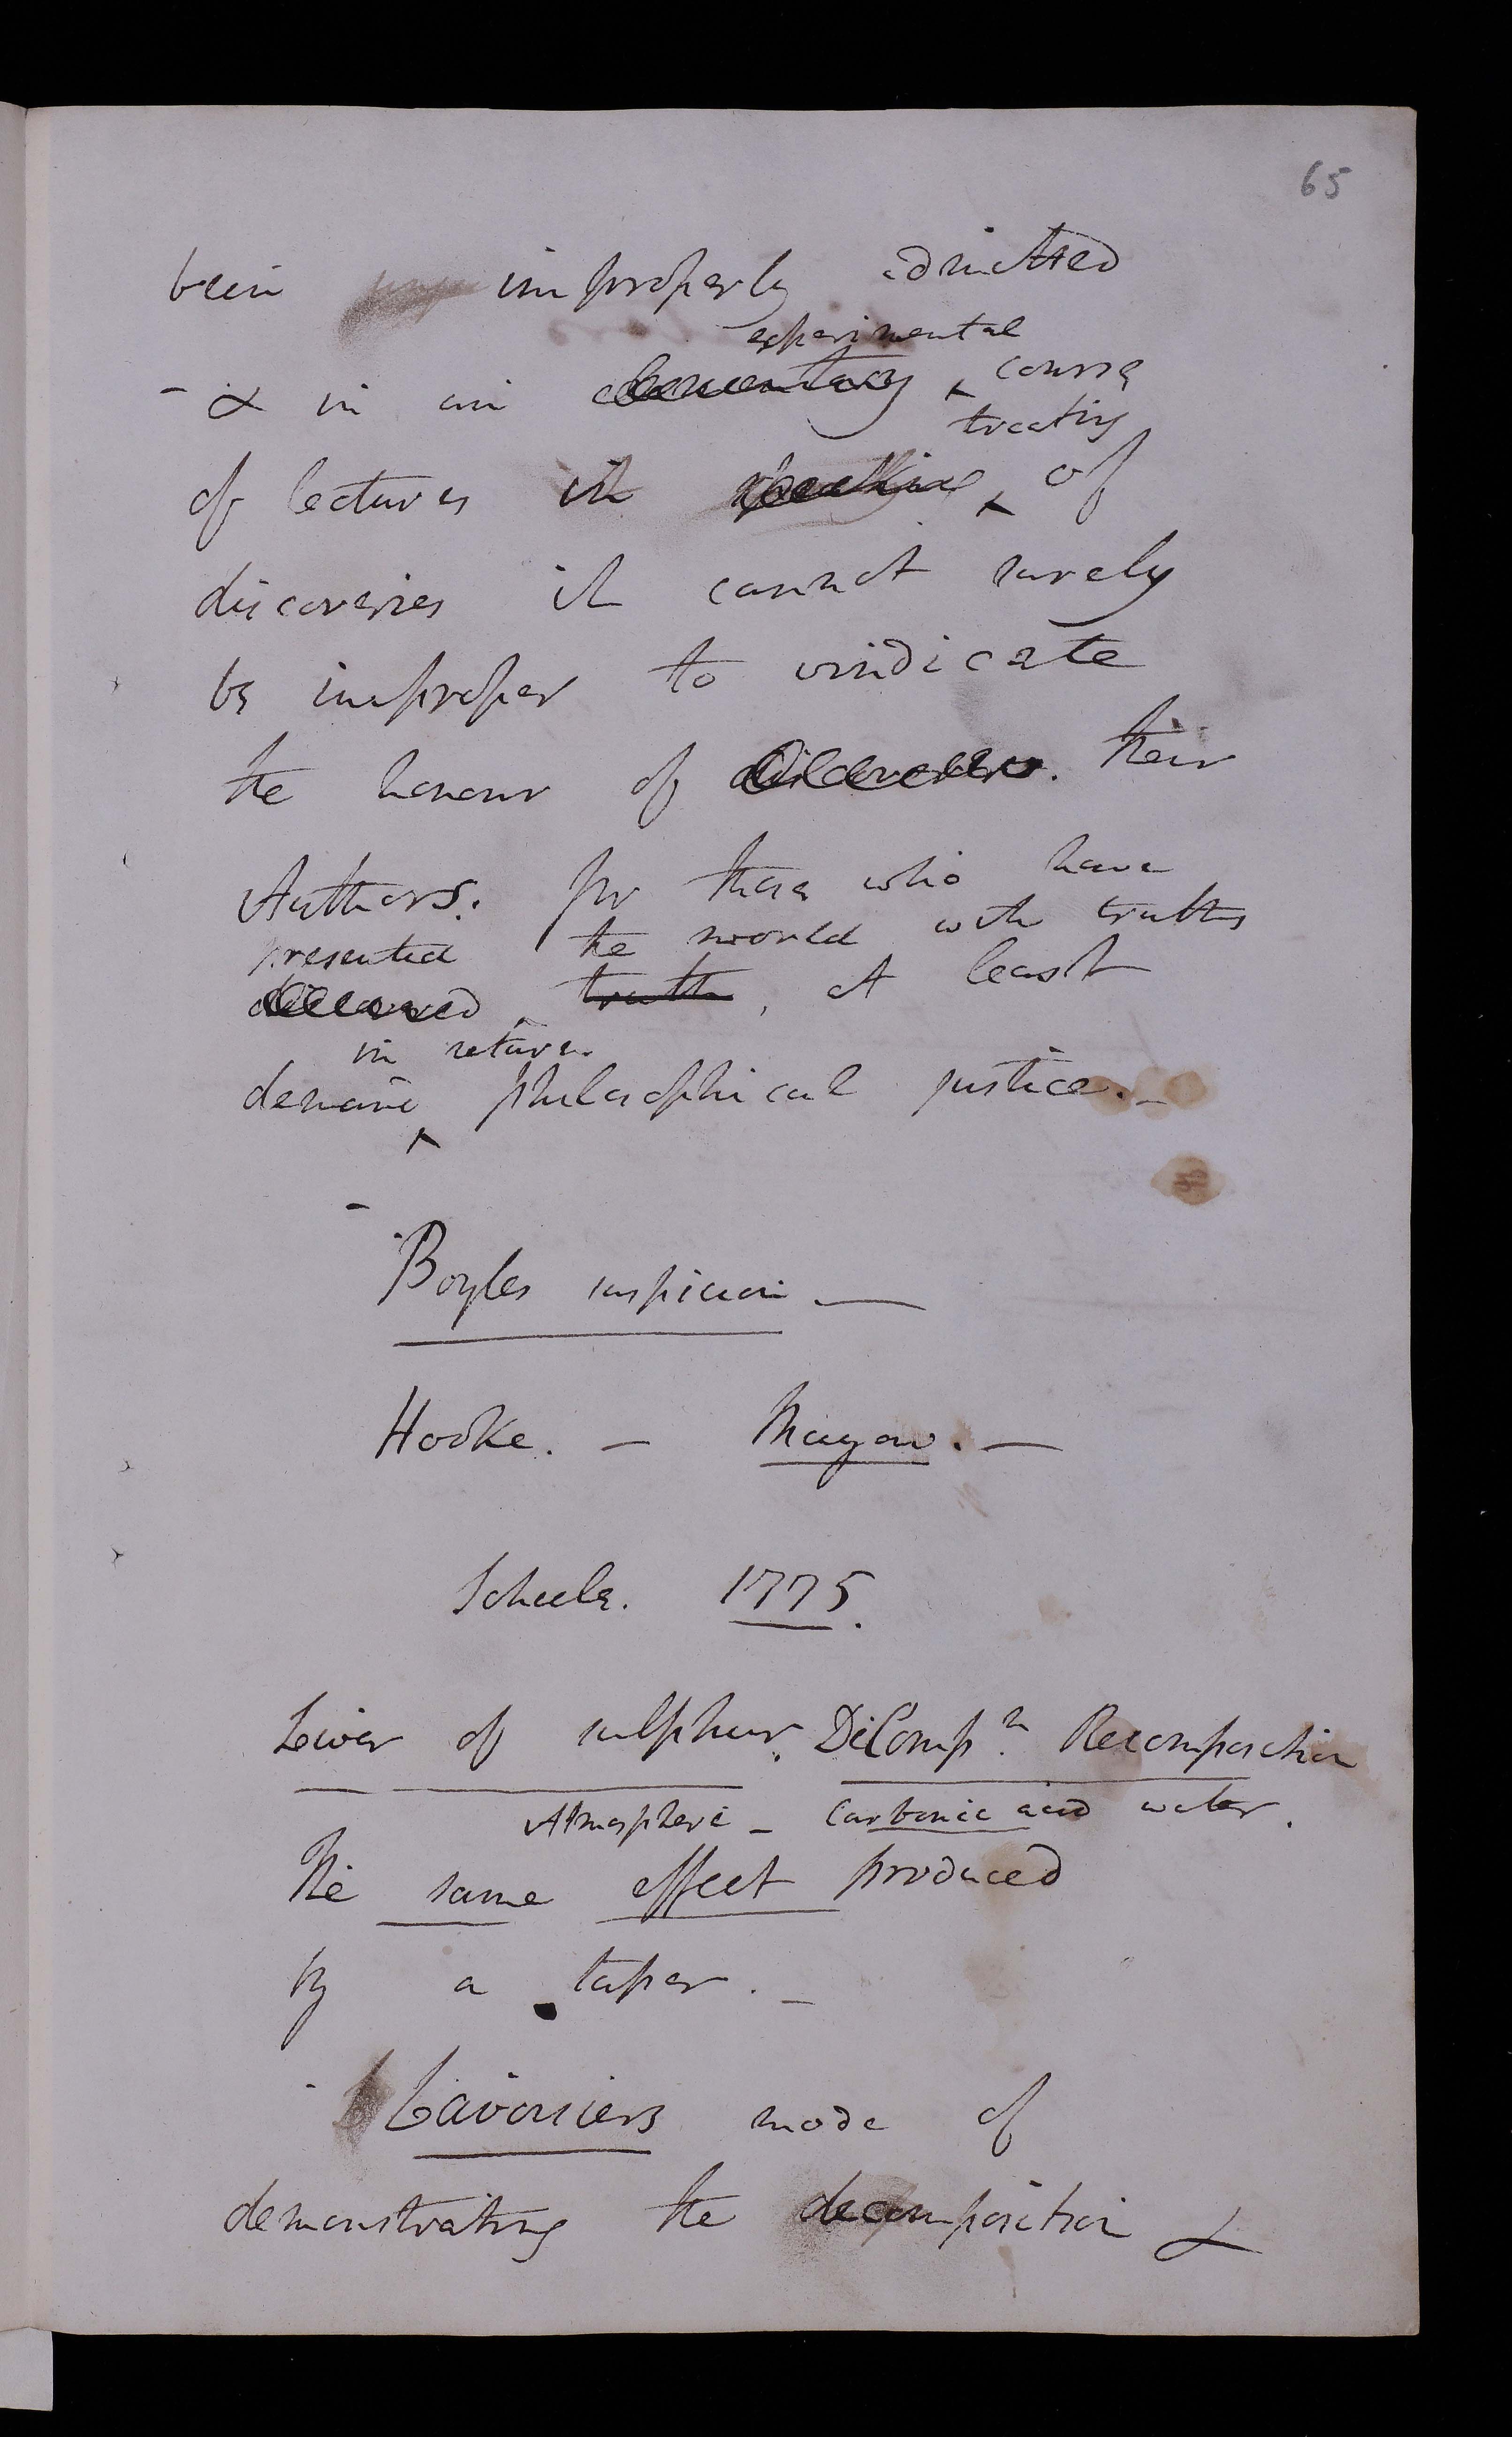 65
been improperly admitted
experimental
- & in an elementary course
treating
of lectures in speaking of
discoveries it cannot surely
be improper to vindicate
the honour of discoverers. their
Authors. for those who have
presented the world with truths
discovered truth, at least
in return.
demand philosophical justice. -
Boyles suspicion —
Hooke. — Mayow. —
Scheele. 1775.
Liver of sulphur. DeComp.n Recomposition
Atmosphere - carbonic acid water.
The same effect produced
by a taper. -
Lavoisiers mode of
demonstrating the decomposition &